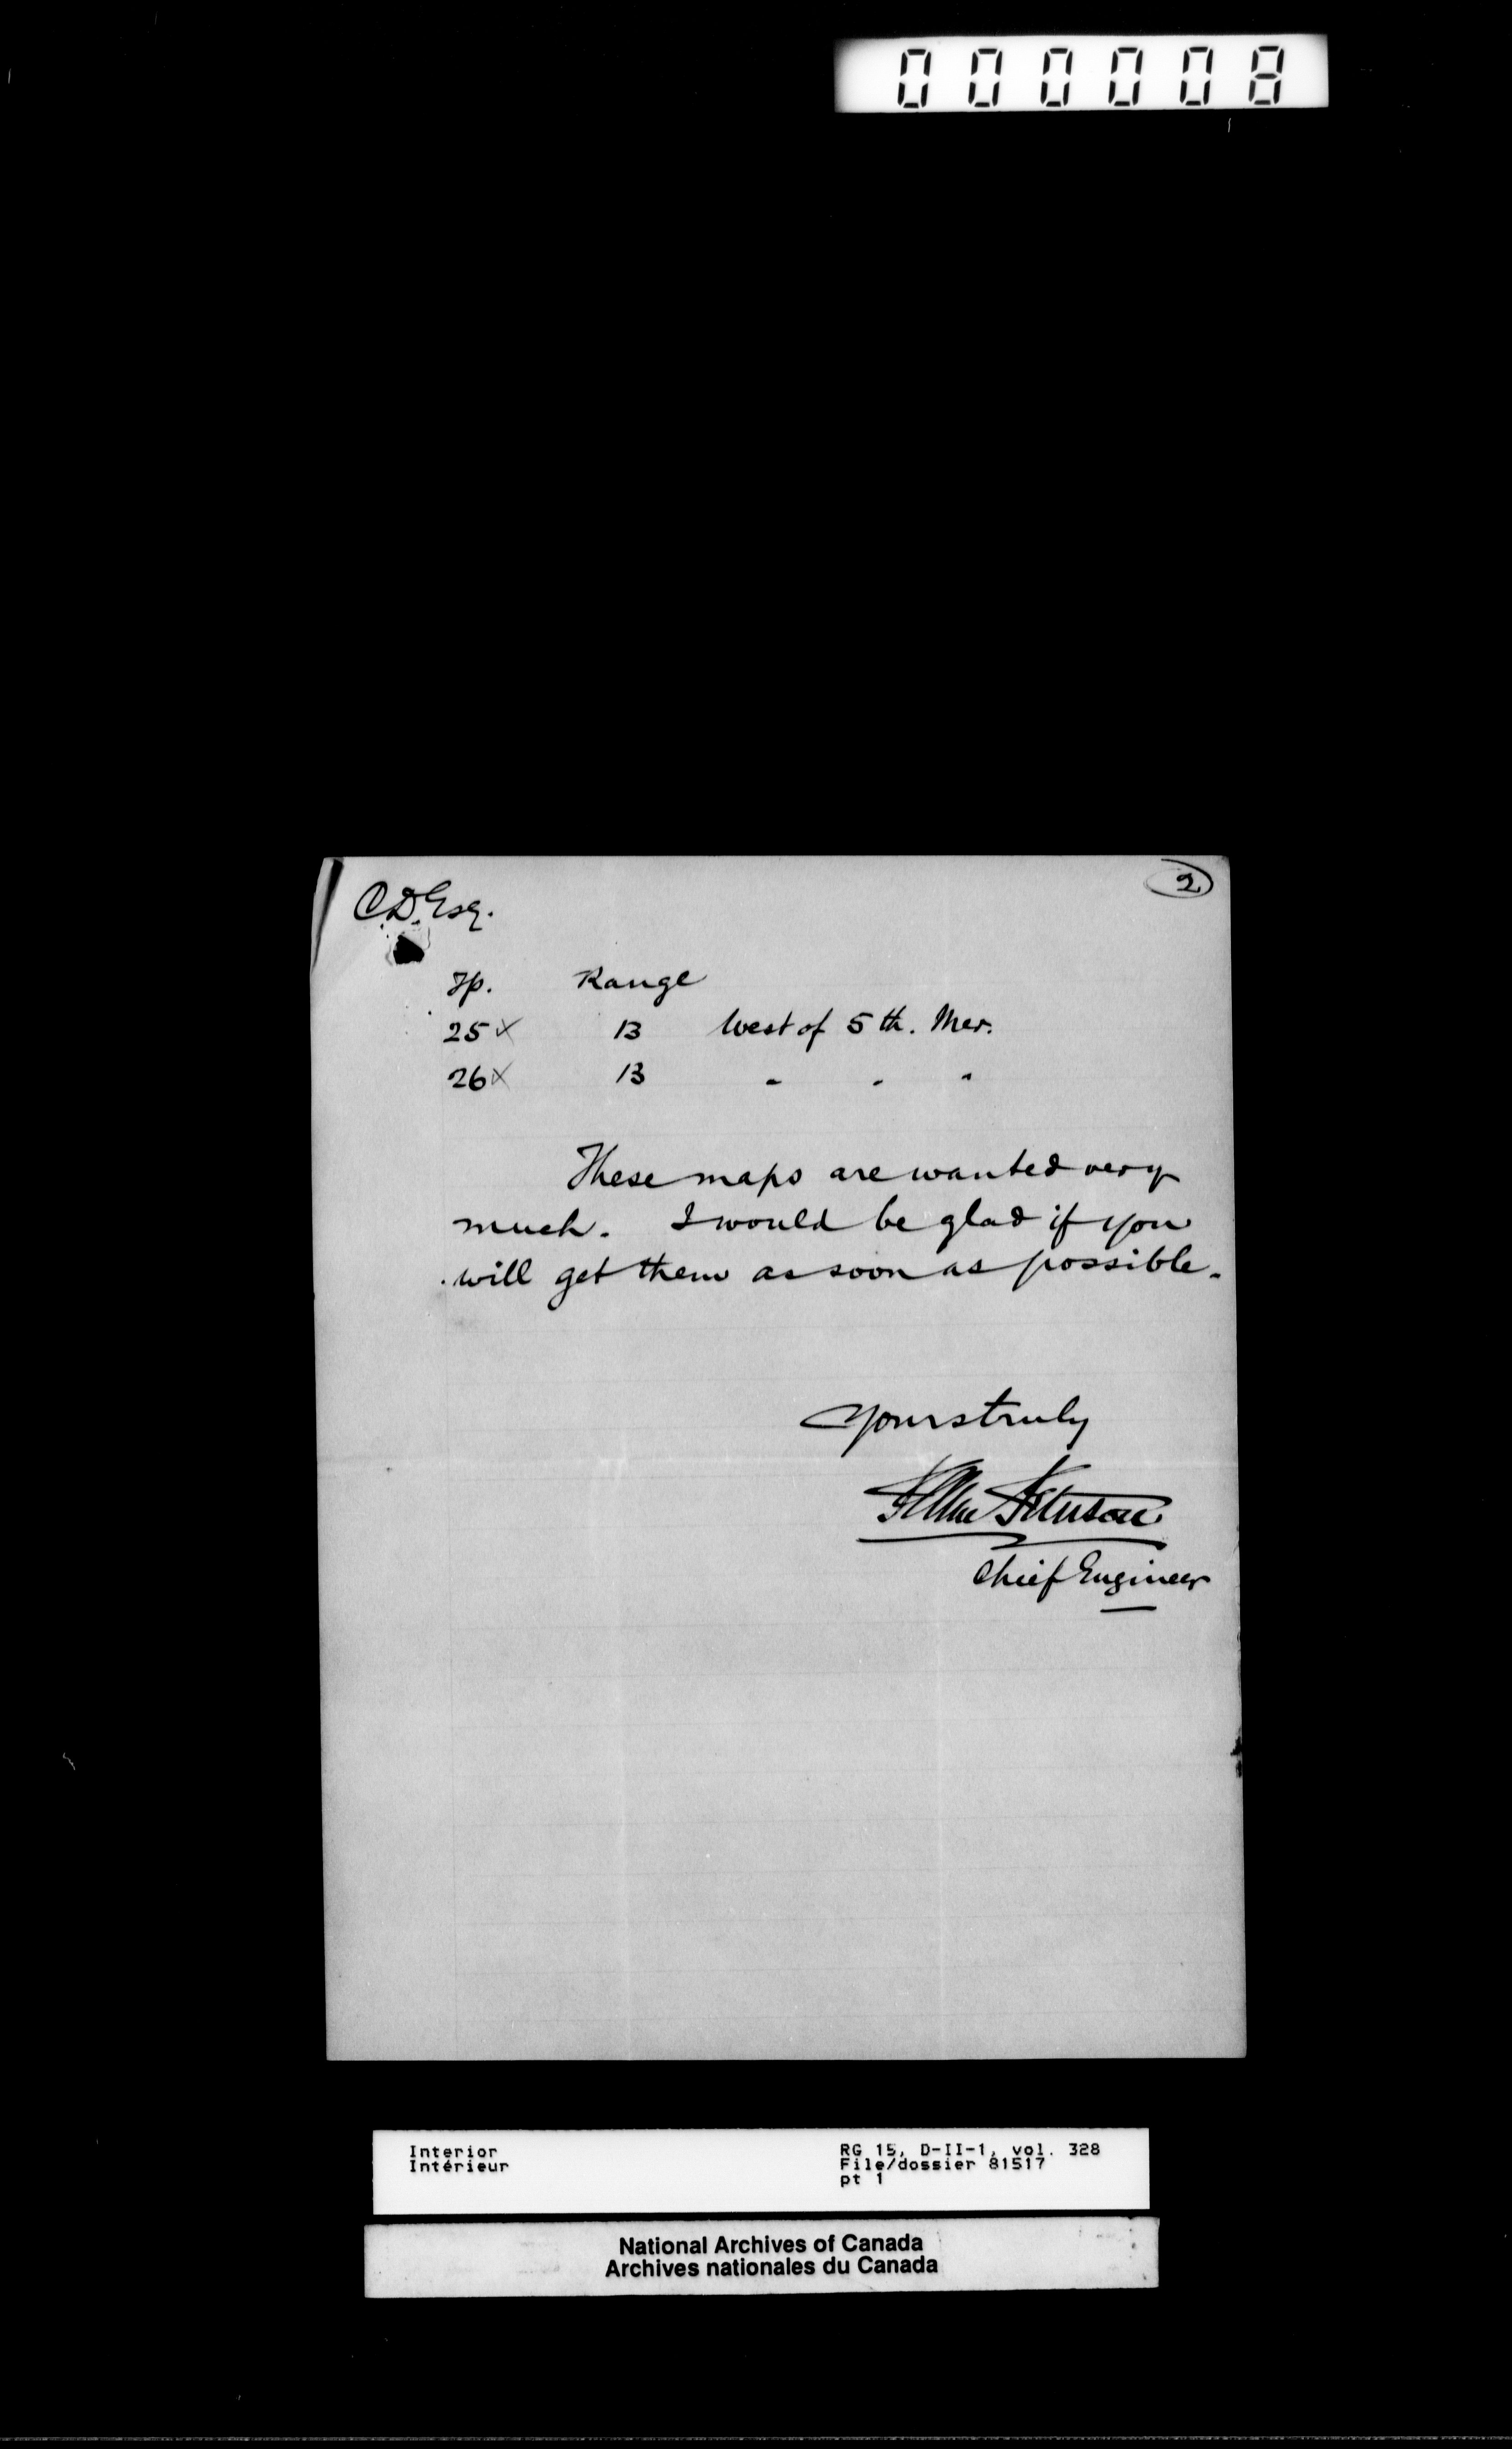 000008
2
C.D. Esq.
Tp. Range
25 x 13 West of 5th. Mer.
26 x 13 " " "
These maps are wanted very
much. I would be glad if you
will get them as soon as possible.
Yours truly
Chief Engineer
Interior RG 15, D-II-1, vol. 328
Intérieur File/dossier 81517
pt 1
National Archives of Canada
Archives nationales du Canada